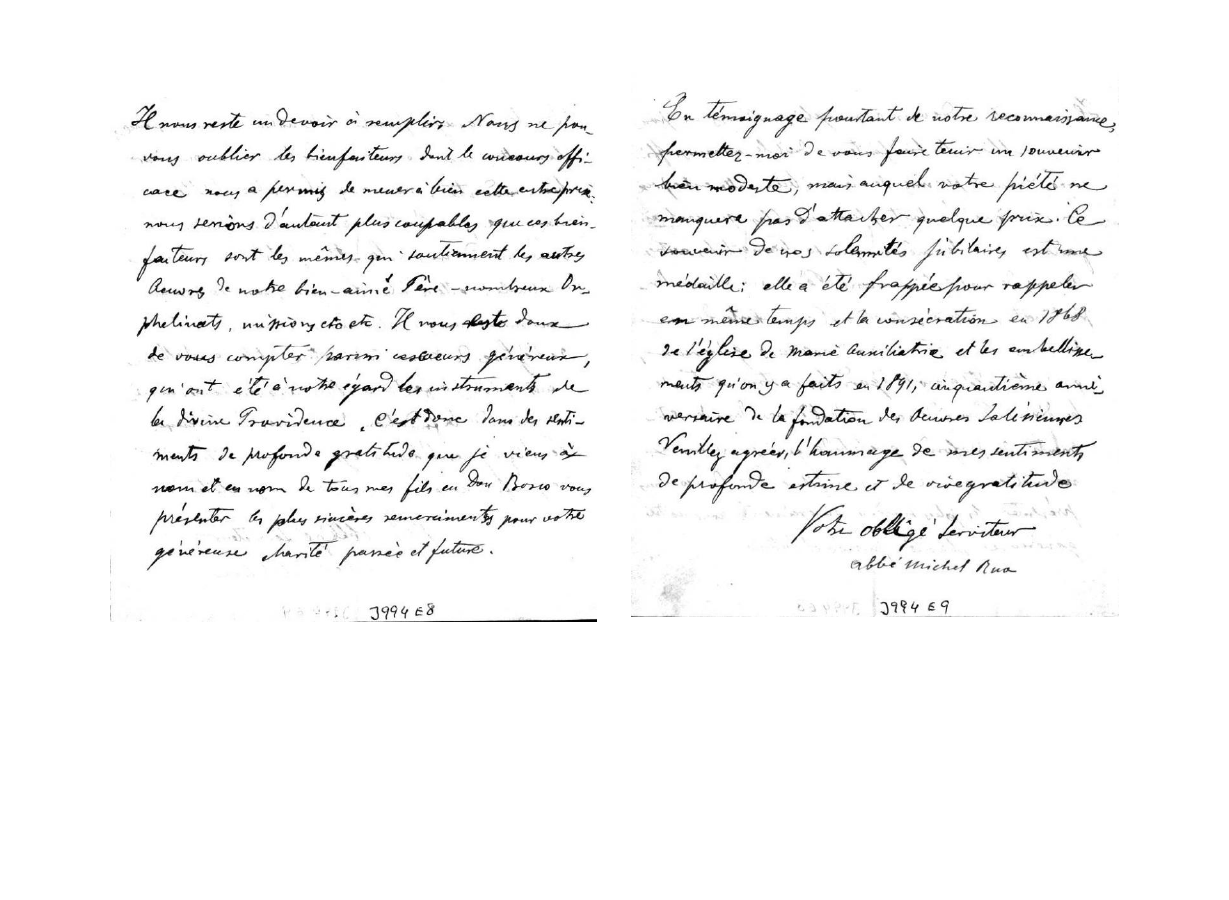 Il nous reste un devoir à remplir. Nous ne pou-
vons oublier les bienfaiteurs dont le concours effi-
cace nous a permis de mener à bien cette entreprise.
nous serions d'autant plus coupables que ces bien-
faiteurs sont les mêmes qui soutiennent les autres
Oeuvres de notre bien-aimé Père - nombreux Or-
phelinats, missions etc etc. Il nous reste doux
de vous compter parmi ces coeurs généreux,
qui ont été à notre égard les instruments de
la divine Providence. C'est donc dans des senti-
ments de profonde gratitude que je viens
nom et en nom de tous mes fils en Don Bosco vous
présenter les plus sincères remerciments pour votre
généreuse charité passée et future.
J994 E8
En témoignage pourtant de notre reconnaissance,
permettez-moi de vous faire tenir un souvenir
bien modeste, mais auquel votre piété ne
manquera pas d'attacher quelque prix. Ce
souvenir de nos solemnités jubilaires est une
médaille: elle a été frappée pour rappeler
en même temps et la consécration en 1868
de l'église de Marie Auxiliatrice et les embellisse-
ments qu'on y a faits en 1891, cinquantième anni-
versaire de la fondation des Oeuvres Salésiennes
Veuillez agréer, l'hommage de mes sentiments
de profonde estime et de vive gratitude
Votre obligé Serviteur
abbé Michel Rua
J994 E9